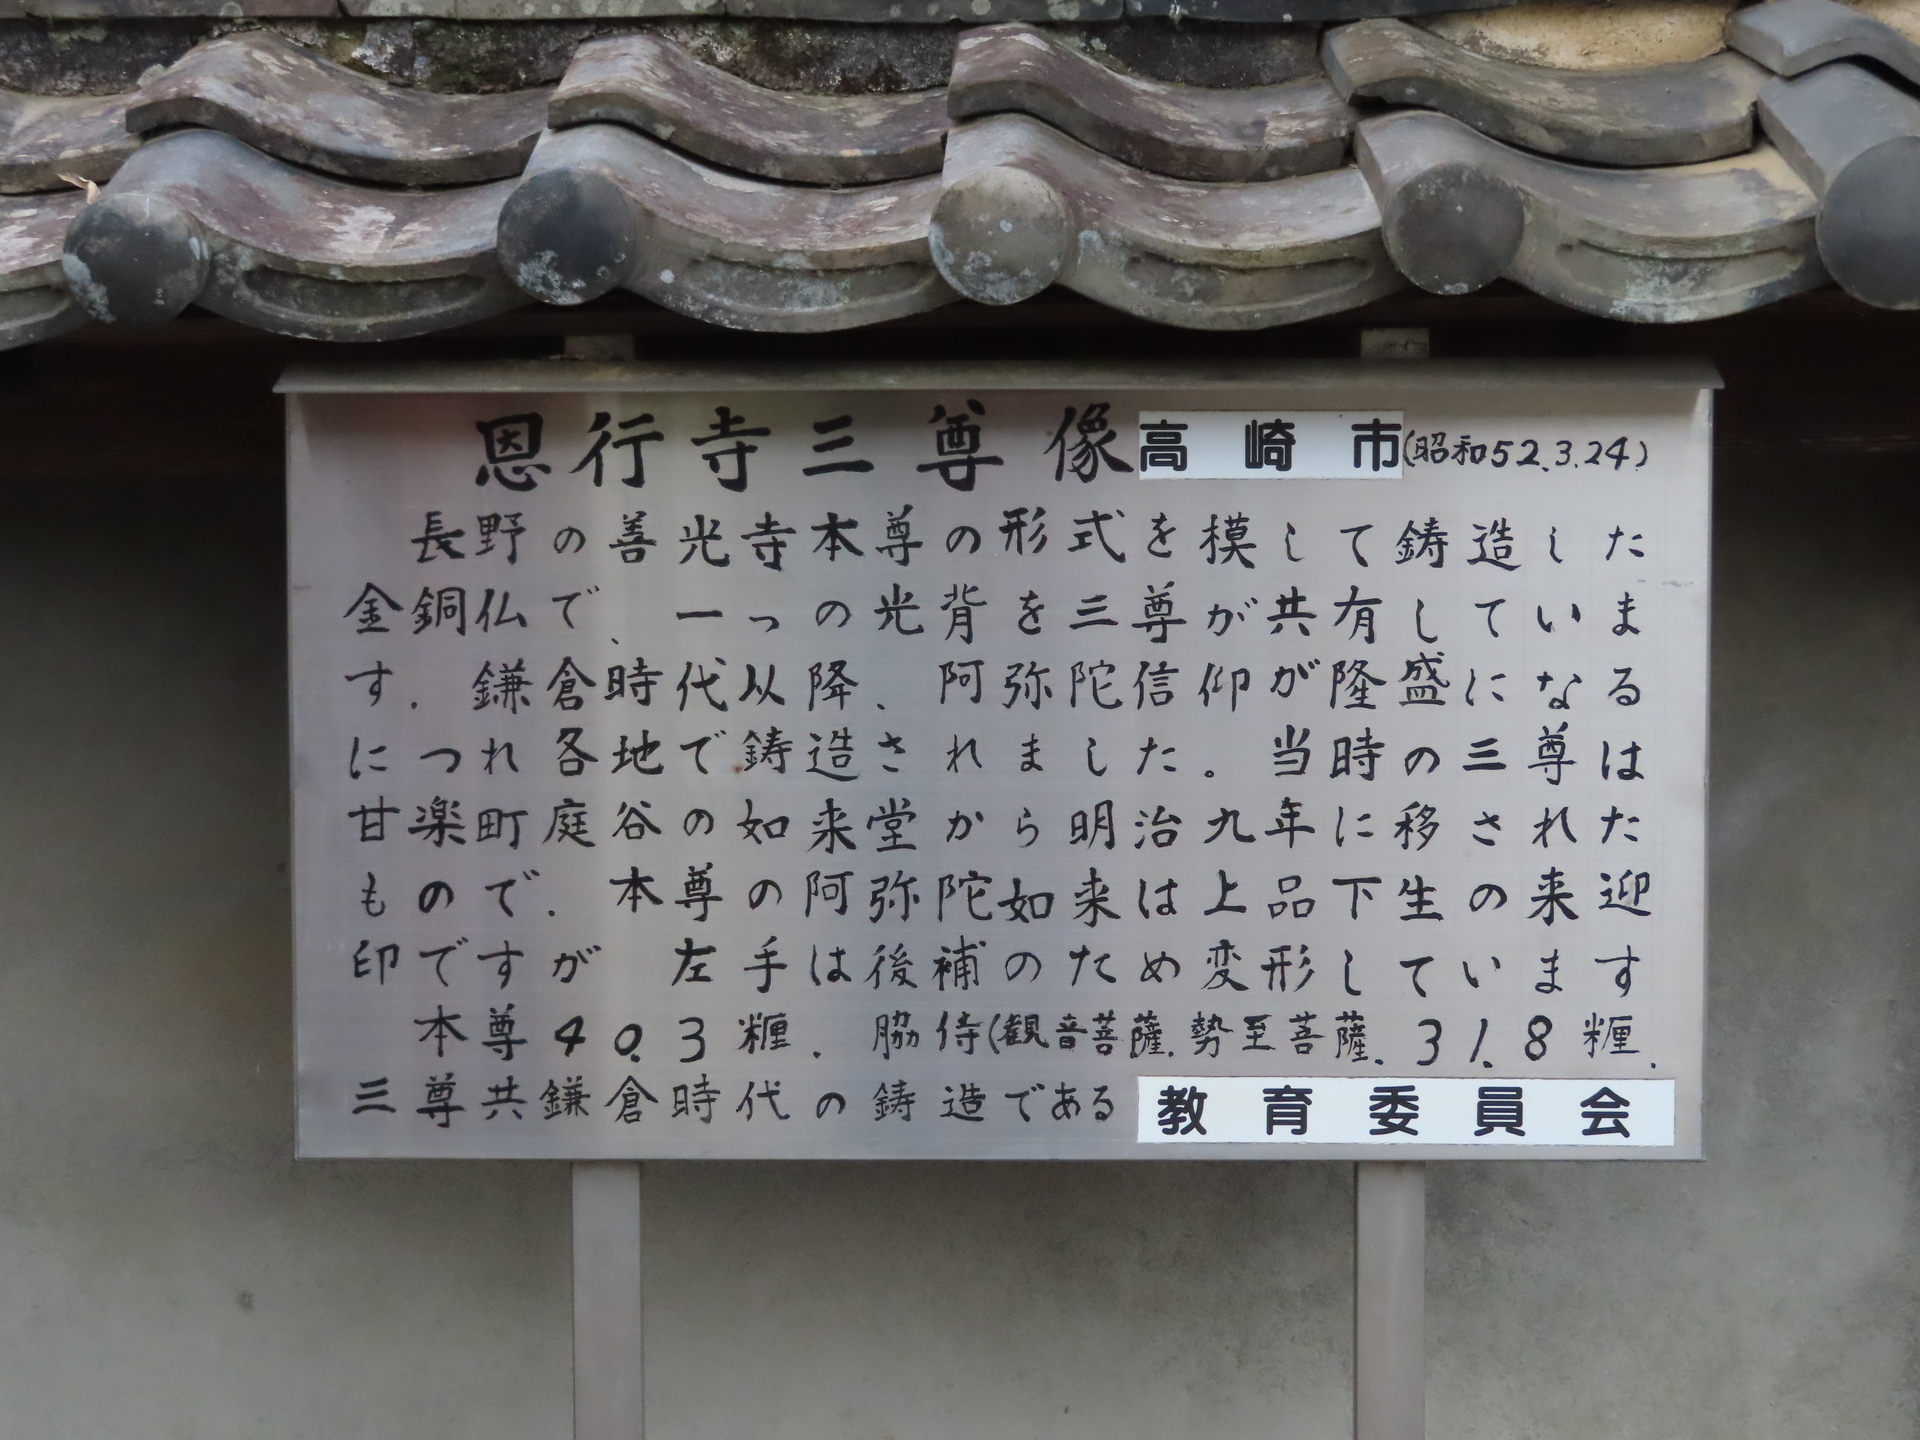 恩行寺三尊像高崎市(昭和52.3.24)
長野の善光寺本尊の形式を模して鋳造した
金銅仏で、一っの光背を三尊が共有していま
す. 鎌倉時代以降、阿弥陀信仰が隆盛になる
につれ各地で鋳造されました。当時の三尊は
甘楽町庭谷の如来堂から明治九年に移された
もので. 本尊の阿弥陀如来は上品下生の来迎
印ですが 左手は後補のため変形しています
本尊40.3糎. 脇侍(観音菩薩.勢至菩薩.31.8糎.
三尊共鎌倉時代の鋳造である 教育委員会